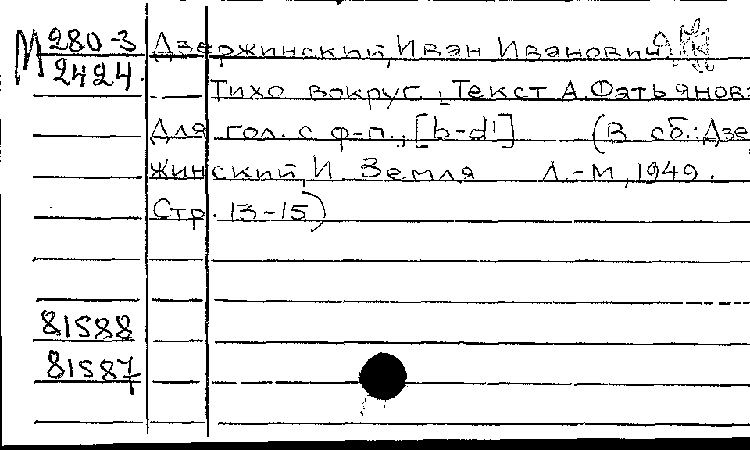 М 280-3
2424.
Дзержинский, Иван Иванович.
Тихо вокруг. Текст А.Фатьянова
Для гол. с ф-п., [b-d¹] (В сб.: Дзер
жинский, И. Земля Л.-М, 1949.
Стр. 13-15)
81588
81587